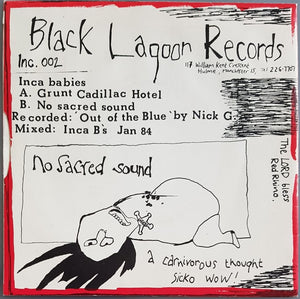 Black Lagoon Records
Inc. 002
117 William Kent Crescent
Hulme, Manchester 15,
Inca babies
A. Grunt Cadillac Hotel
B. No sacred sound
Recorded: 'Out of the Blue' by Nick G
Mixed: Inca B's Jan 84
The LORD bless
Red Rhino.
No Sacred sound
a carnivorous thought
sicko wow!